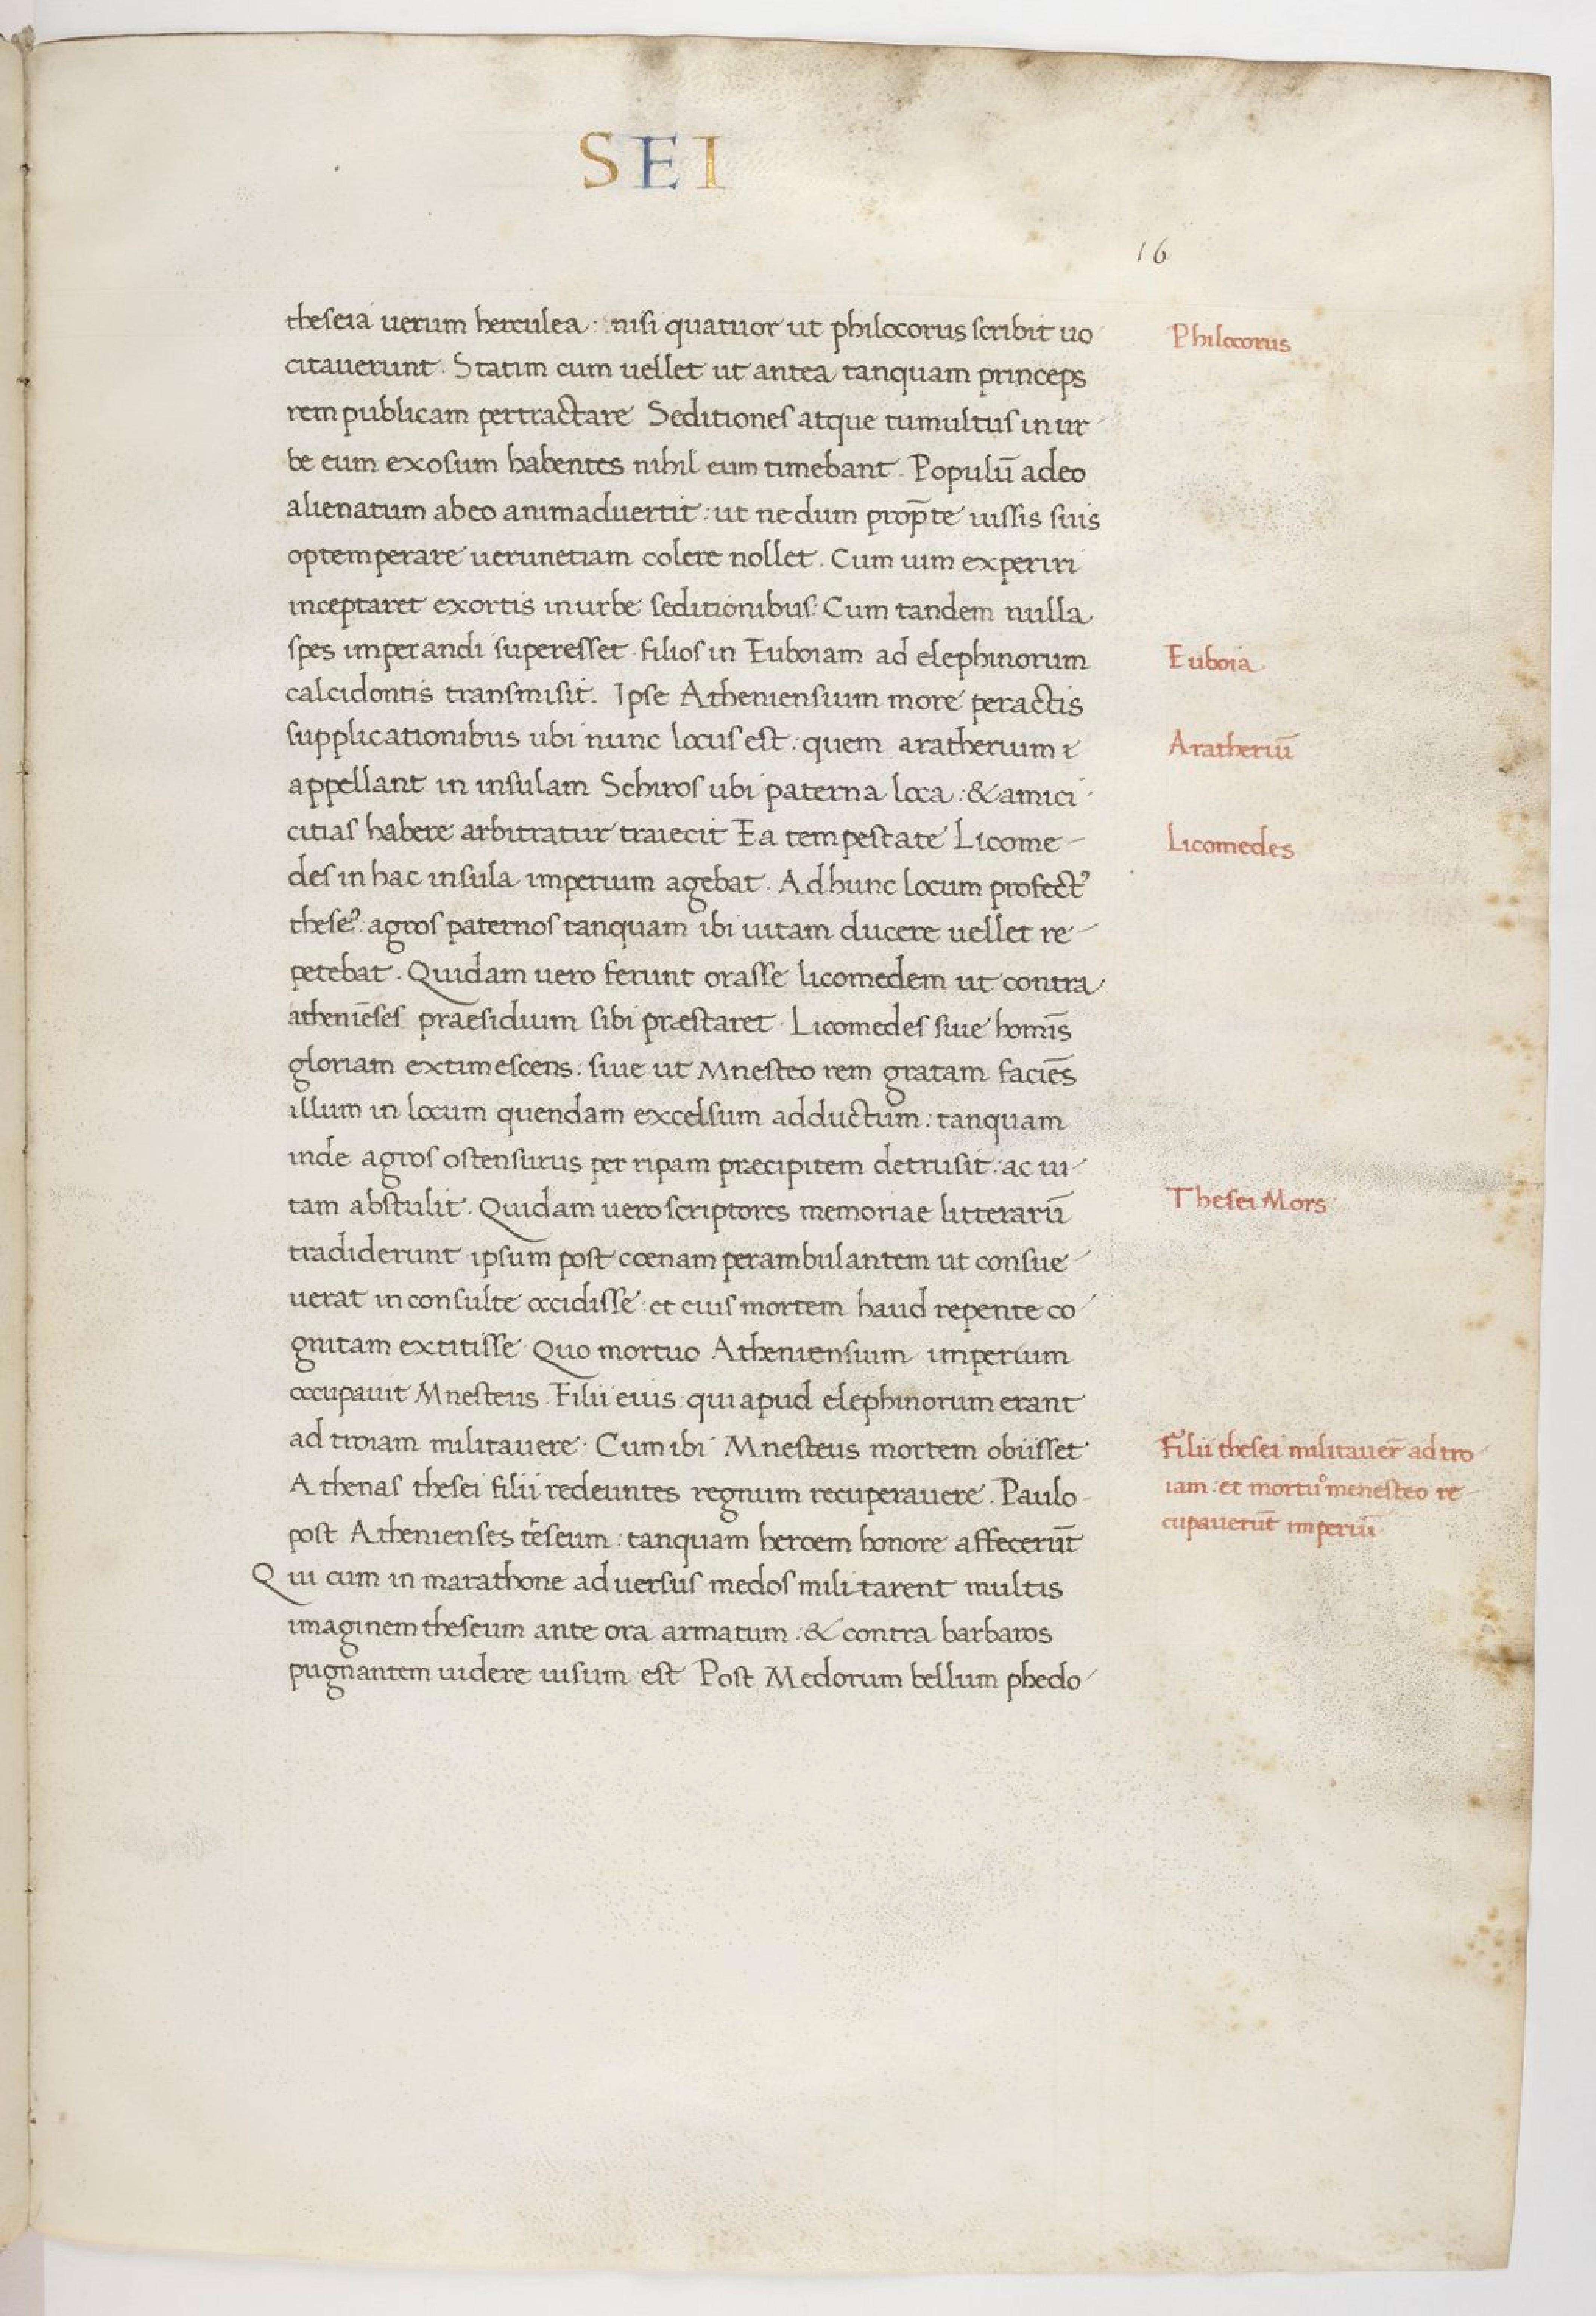 SEI
16
theseia uerum herculea : nisi quatuor ut philocorus scribit uo
citauerunt. Statim cum uellet ut antea tanquam princeps
rem publicam pertractare Seditiones atque tumultus in ur
be eum exosum habentes nihil eum timebant. Populū adeo
alienatum ab eo animaduertit : ut nedum prop̄te iussis suis
optemperare uerunetiam colere nollet. Cum uim experiri
inceptaret exortis in urbe seditionibus: Cum tandem nulla
spes imperandi superesset filios in Euboiam ad elephinorum
calcidontis transmisit. Ipse Atheniensium more peractis
supplicationibus ubi nunc locus est : quem aratherium
appellant in insulam Schiros ubi paterna loca : & amici
citias habere arbitratur traiecit Ea tempestate Licome-
des in hac insula imperium agebat. Ad hunc locum profectꝰ
theseꝰ. agros paternos tanquam ibi uitam ducere uellet re-
petebat. Quidam uero ferunt orasse licomedem ut contra
atheniēses praesidium sibi præstaret. Licomedes siue homīs
gloriam extimescens : siue ut Mnesteo rem gratam faciēs
illum in locum quendam excelsum adductum : tanquam
inde agros ostensurus per ripam præcipitem detrusit : ac ui-
tam abstulit. Quidam uero scriptores memoriae litterarū
tradiderunt ipsum post coenam perambulantem ut consue-
uerat inconsulte occidisse : et eius mortem haud repente co-
gnitam extitisse Quo mortuo Atheniensium imperium
occupauit Mnesteus. Filii eius : qui apud elephinorum erant
ad troiam militauere. Cum ibi Mnesteus mortem obiisset
Athenas thesei filii redeuntes regnum recuperauere. Paulo
post Athenienses teseum : tanquam heroem honore affecerūt
Qui cum in marathone aduersus medos militarent multis
imaginem theseum ante ora armatum : & contra barbaros
pugnantem uidere uisum est Post Medorum bellum phedo-
Philocorus
Euboia
Aratheriū
Licomedes
Thesei Mors
Filii thesei militauer̄ ad tro-
iam : et mortuo menesteo re-
cupauerūt imperiū